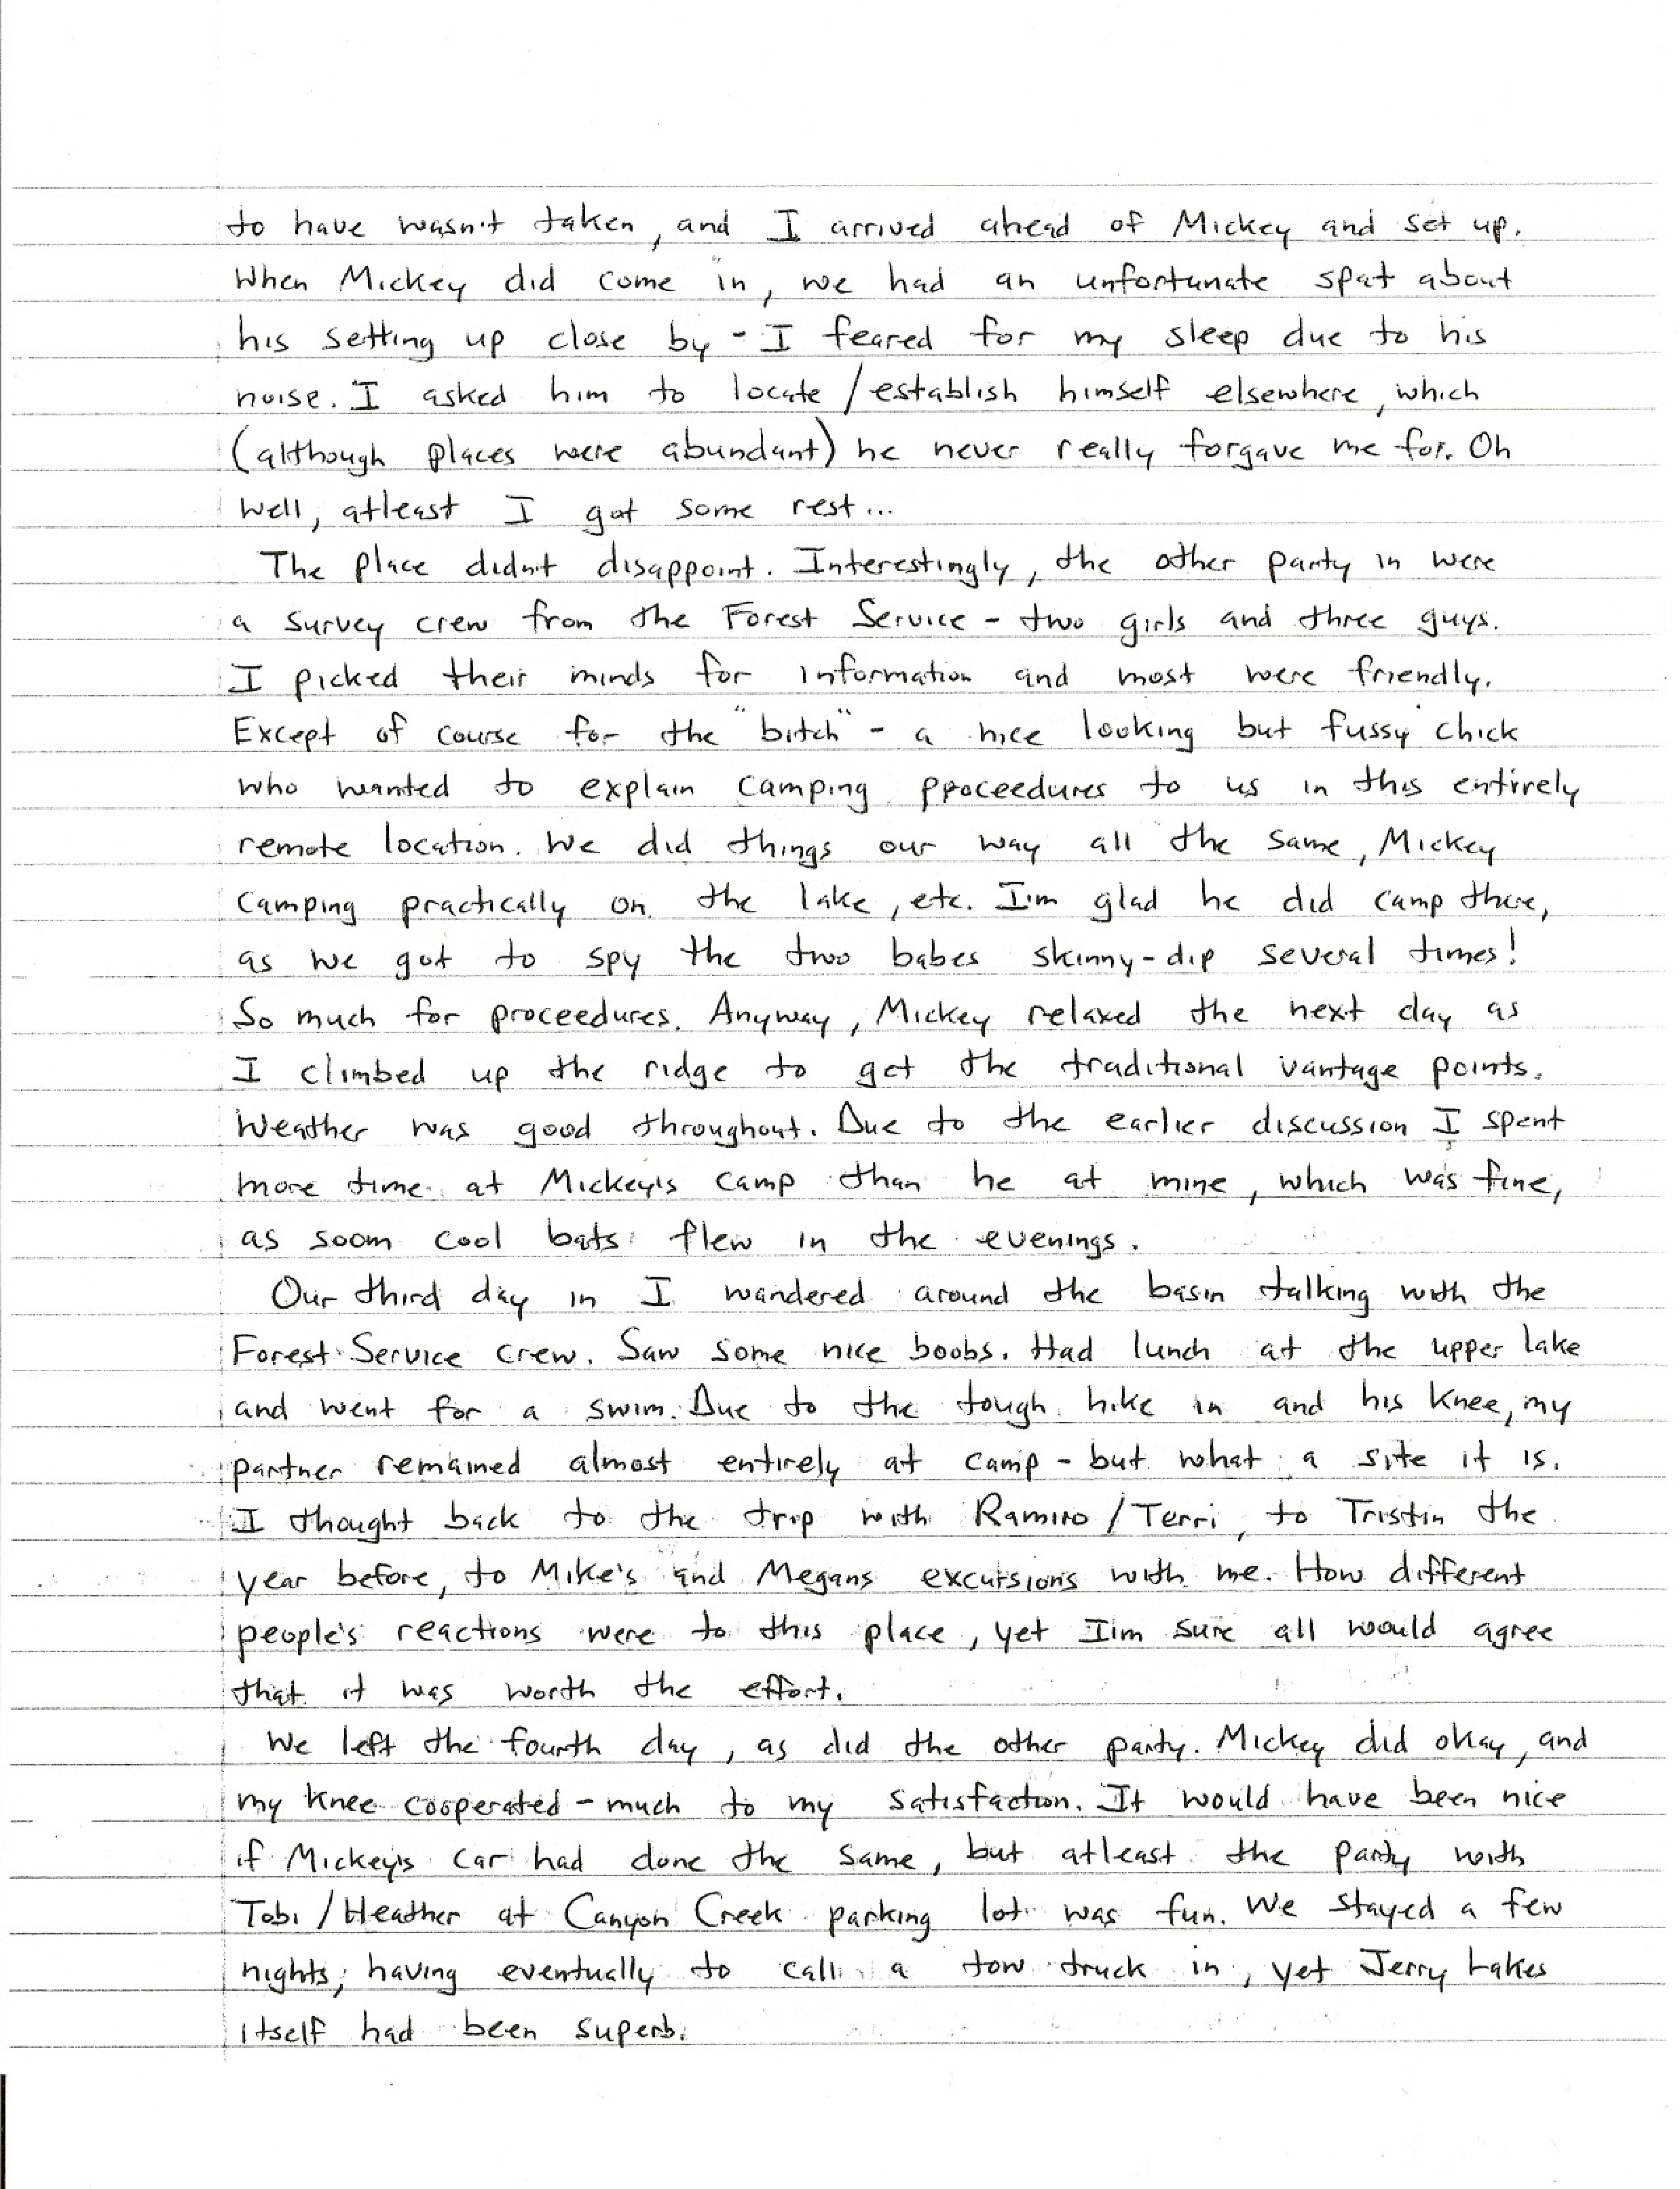 to have wasn't taken, and I arrived ahead of Mickey and set up.
When Mickey did come in, we had an unfortunate spat about
his setting up close by - I feared for my sleep due to his
noise. I asked him to locate/establish himself elsewhere, which
(although places were abundant) he never really forgave me for. Oh
well, atleast I got some rest...
The place didn't disappoint. Interestingly, the other party in were
a survey crew from the Forest Service - two girls and three guys.
I picked their minds for information and most were friendly.
Except of course for the "bitch" - a nice looking but fussy chick
who wanted to explain camping proceedures to us in this entirely
remote location. We did things our way all the same, Mickey
camping practically on the lake, etc. I'm glad he did camp there,
as we got to spy the two babes skinny-dip several times!
So much for proceedures. Anyway, Mickey relaxed the next day as
I climbed up the ridge to get the traditional vantage points.
Weather was good throughout. Due to the earlier discussion I spent
more time at Mickey's camp than he at mine, which was fine,
as soom cool bats flew in the evenings.
Our third day in I wandered around the basin talking with the
Forest Service crew. Saw some nice boobs. Had lunch at the upper lake
and went for a swim. Due to the tough hike in and his knee, my
partner remained almost entirely at camp - but what a site it is.
I thought back to the trip with Ramiro/Terri, to Tristin the
year before, to Mike's and Megans excursions with me. How different
people's reactions were to this place, yet I'm sure all would agree
that it was worth the effort.
We left the fourth day, as did the other party. Mickey did okay, and
my knee cooperated - much to my satisfaction. It would have been nice
if Mickey's car had done the same, but atleast the party with
Tobi/Heather at Canyon Creek parking lot was fun. We stayed a few
nights, having eventually to call a tow truck in, yet Jerry Lakes
itself had been superb.